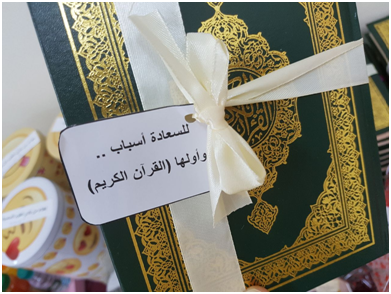 للسعادة أسباب ..
وأولها (القرآن الكريم)